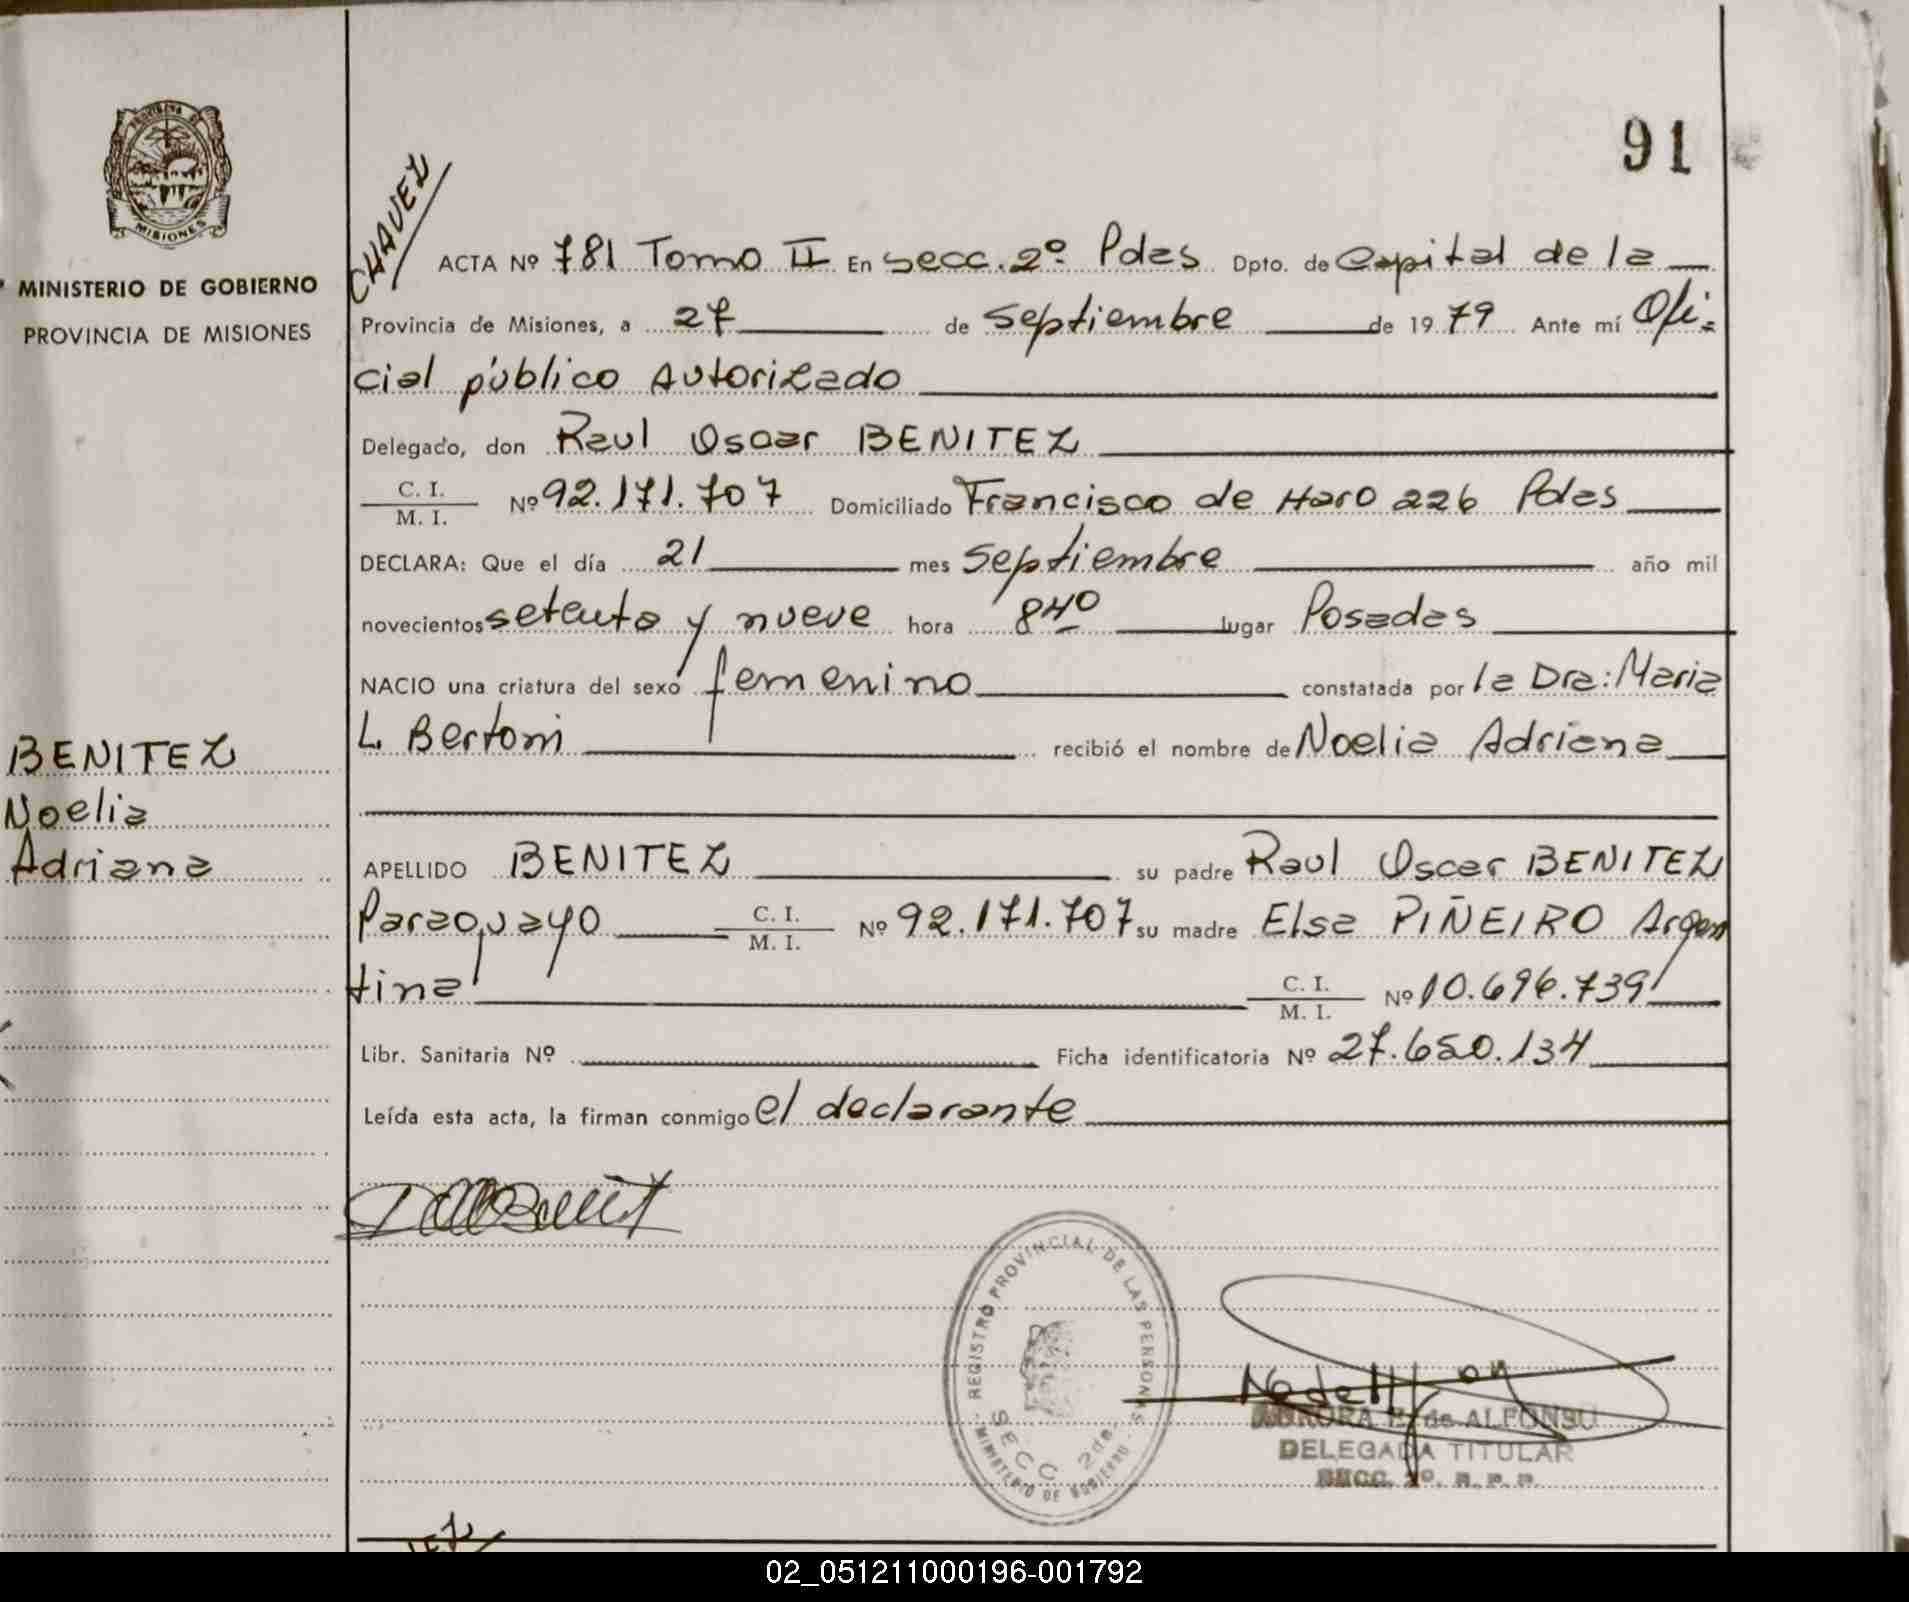 91
PROVINCIA DE
MISIONES
MINISTERIO DE GOBIERNO
PROVINCIA DE MISIONES
CHAVEZ
ACTA Nº 781 Tomo II En secc. 2º Pdas Dpto. de Capital de la
Provincia de Misiones, a 27 de Septiembre de 1979 Ante mí Ofi-
cial público Autorizado
Delegado, don Raul Oscar BENITEZ
C. I.
M. I. Nº 92.171.707 Domiciliado Francisco de Haro 226 Pdas
DECLARA: Que el día 21 mes Septiembre año mil
novecientos setenta y nueve hora 840 lugar Posadas
NACIO una criatura del sexo femenino constatada por la Dra: Maria
L Bertoni recibió el nombre de Noelia Adriana
BENITEZ
Noelia
Adriana
APELLIDO BENITEZ su padre Raul Oscar BENITEZ
Paraguayo C. I.
M. I. Nº 92.171.707 su madre Elsa PIÑEIRO Argen
tina C. I.
M. I. Nº 10.696.739
Libr. Sanitaria Nº Ficha identificatoria Nº 27.650.134
Leída esta acta, la firman conmigo el declarante
REGISTRO PROVINCIAL DE LAS PERSONAS
SECC 2da
MINISTERIO DE GOBIERNO
AURORA de ALFONSO
DELEGADA TITULAR
SECC. 2º. R. P. P.
02_051211000196-001792